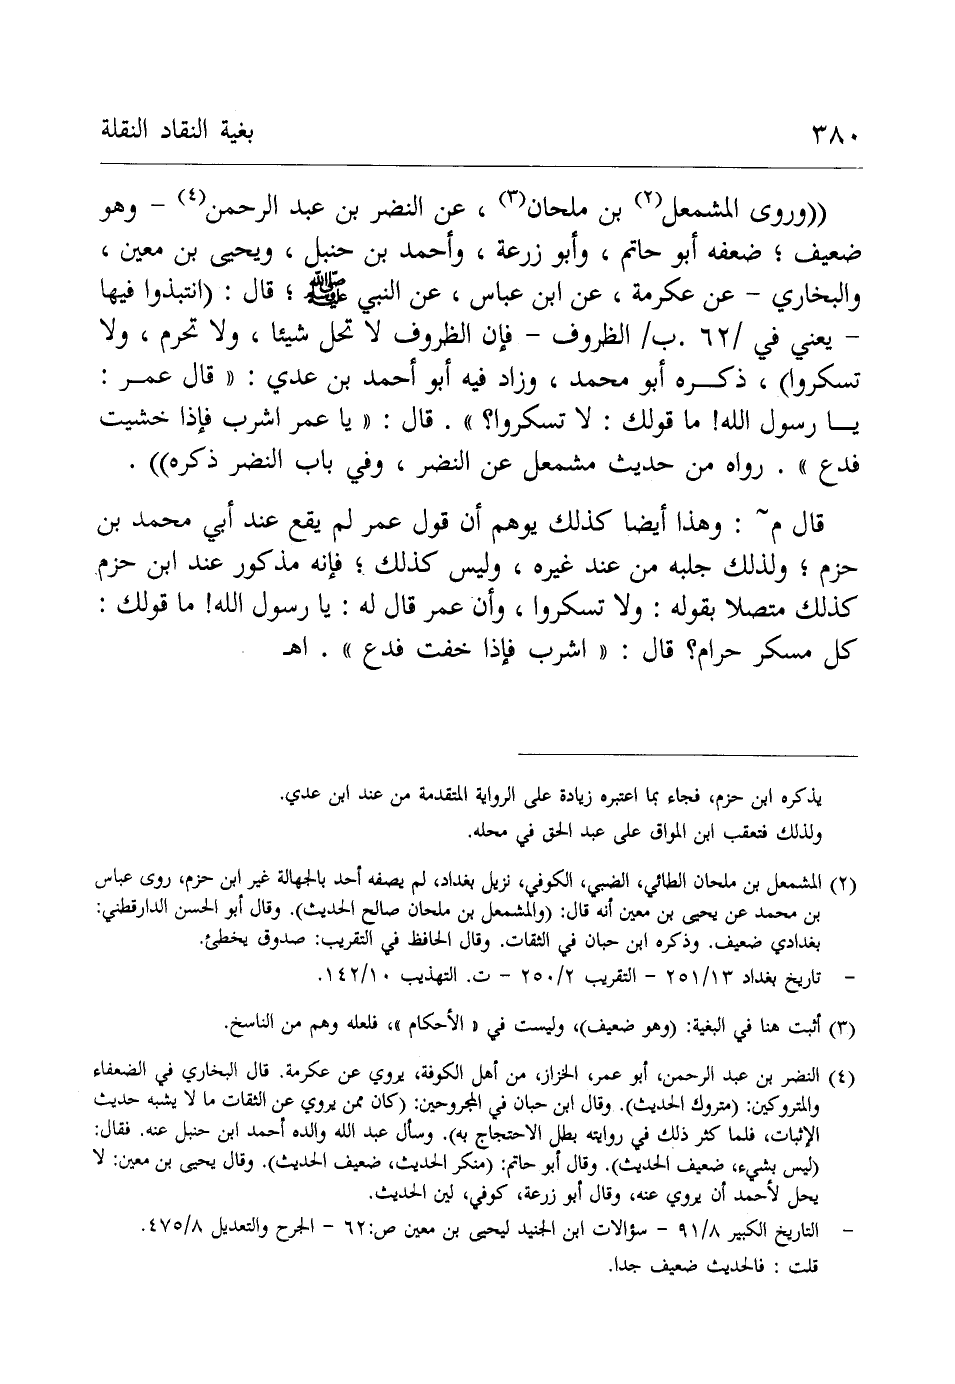 ٣٨٠ بغية النقاد النقلة
((وروى المشمعل(٢) بن ملحان(٣) ، عن النضر بن عبد الرحمن(٤) – وهو
ضعيف ؛ ضعفه أبو حاتم ، وأبو زرعة ، وأحمد بن حنبل ، ويحيى بن معين ،
والبخاري – عن عكرمة ، عن ابن عباس ، عن النبي ﷺ ؛ قال : (انتبذوا فيها
– يعني في /٦٢ .ب/ الظروف – فإن الظروف لا تحل شيئا ، ولا تحرم ، ولا
تسكروا) ، ذكره أبو محمد ، وزاد فيه أبو أحمد بن عدي : « قال عمر :
يا رسول الله! ما قولك : لا تسكروا؟ » . قال : « يا عمر اشرب فإذا خشيت
فدع » . رواه من حديث مشمعل عن النضر ، وفي باب النضر ذكره)) .
قال م~ : وهذا أيضا كذلك يوهم أن قول عمر لم يقع عند أبي محمد بن
حزم ؛ ولذلك جلبه من عند غيره ، وليس كذلك ؛ فإنه مذكور عند ابن حزم
كذلك متصلا بقوله : ولا تسكروا ، وأن عمر قال له : يا رسول الله! ما قولك :
كل مسكر حرام؟ قال : « اشرب فإذا خفت فدع » . اهـ
يذكره ابن حزم، فجاء بما اعتبره زيادة على الرواية المتقدمة من عند ابن عدي.
ولذلك فتعقب ابن المواق على عبد الحق في محله.
(٢) المشمعل بن ملحان الطائي، الضبي، الكوفي، نزيل بغداد، لم يصفه أحد بالجهالة غير ابن حزم، روى عباس
بن محمد عن يحيى بن معين أنه قال: (والمشمعل بن ملحان صالح الحديث). وقال أبو الحسن الدارقطني:
بغدادي ضعيف. وذكره ابن حبان في الثقات. وقال الحافظ في التقريب: صدوق يخطئ.
– تاريخ بغداد ٢٥١/١٣ – التقريب ٢٥٠/٢ – ت. التهذيب ١٤٢/١٠.
(٣) أثبت هنا في البغية: (وهو ضعيف)، وليست في « الأحكام »، فلعله وهم من الناسخ.
(٤) النضر بن عبد الرحمن، أبو عمر، الخزاز، من أهل الكوفة، يروي عن عكرمة. قال البخاري في الضعفاء
والمتروكين: (متروك الحديث). وقال ابن حبان في المجروحين: (كان ممن يروي عن الثقات ما لا يشبه حديث
الإثبات، فلما كثر ذلك في روايته بطل الاحتجاج به). وسأل عبد الله والده أحمد ابن حنبل عنه. فقال:
(ليس بشيء، ضعيف الحديث). وقال أبو حاتم: (منكر الحديث، ضعيف الحديث). وقال يحيى بن معين: لا
يحل لأحمد أن يروي عنه، وقال أبو زرعة، كوفي، لين الحديث.
– التاريخ الكبير ٩١/٨ – سؤالات ابن الجنيد ليحيى بن معين ص:٦٢ – الجرح والتعديل ٤٧٥/٨.
قلت : فالحديث ضعيف جدا.